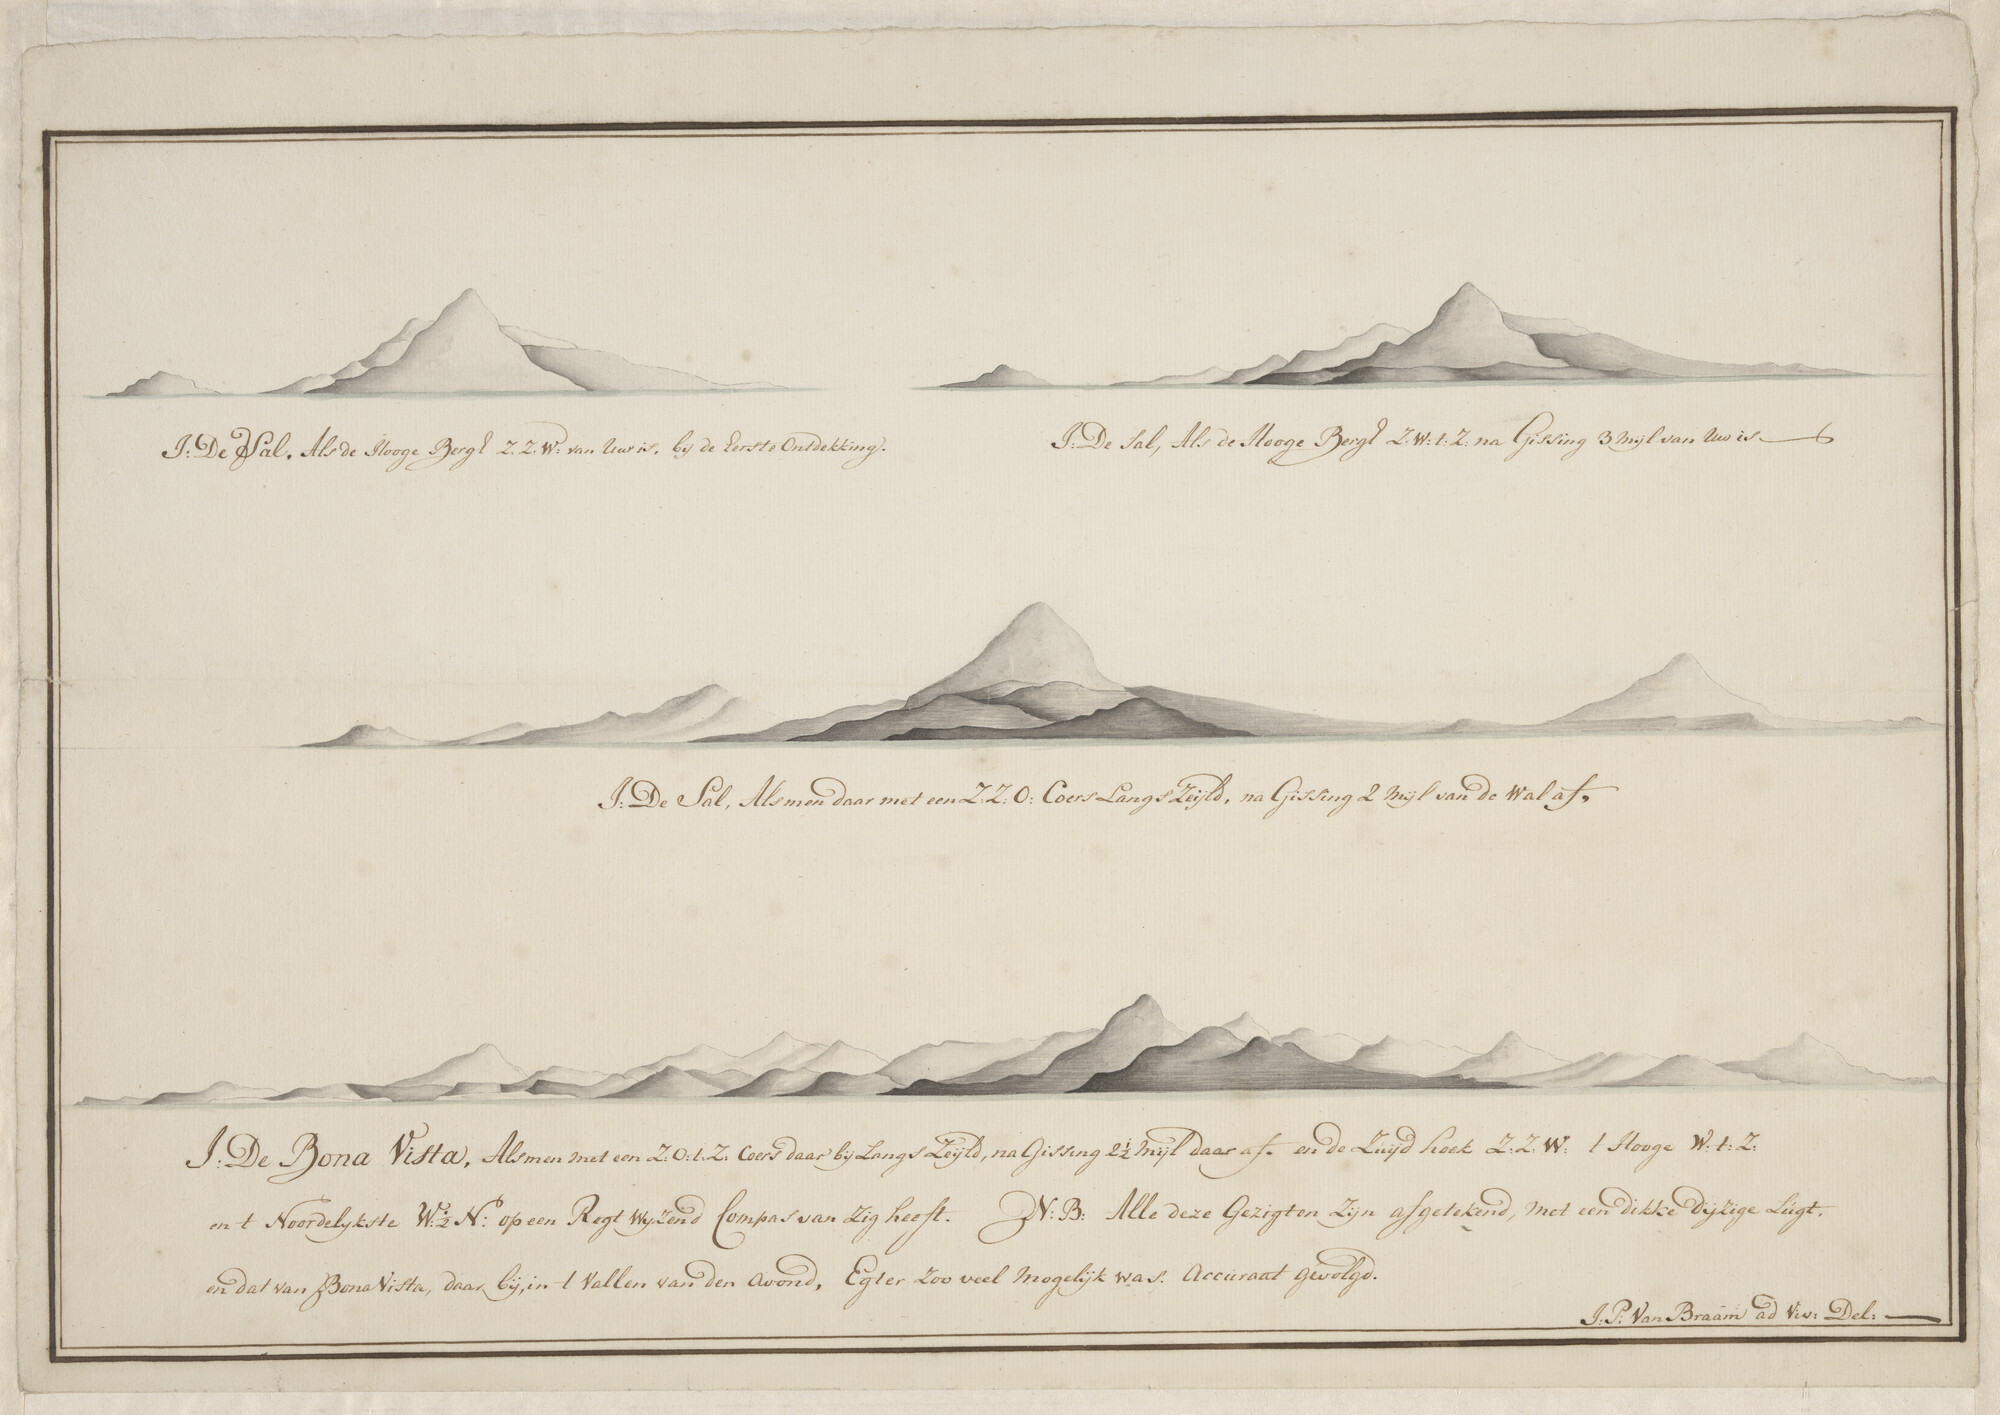 I: De Sal, Als de Hooge Bergt Z.Z.W: van Uw is, bij de Eerste Ontdekking.
I: De Sal, Als de Hooge Bergt Z:W:t:Z: na Gissing 3 Mijl van Uw is
I: De Sal, Als men daar met een Z:Z:O: Coers Langs Zeijld, na Gissing 2 Mijl van de Wal af,
I: De Bona Vista, Als men met een Z:O:t:Z: Coers daar bij Langs Zeijld, na Gissing 2½ Mijl daar af. en de Zuijd hoek Z:Z:W: t Hooge W:t:Z:
en t Noordelykste W:½ N: op een Regt Wyzend Compas van Zig heeft. N:B: Alle deze Gezigten Zijn afgetekend, met een dikke Dijzige Lúgt,
en dat van Bona Vista, daar bij, in t Vallen van den Avond, Egter Zoo veel Mogelijk was. Accúraat gevolgd.
J:P: Van Braam ad Viv: Del: